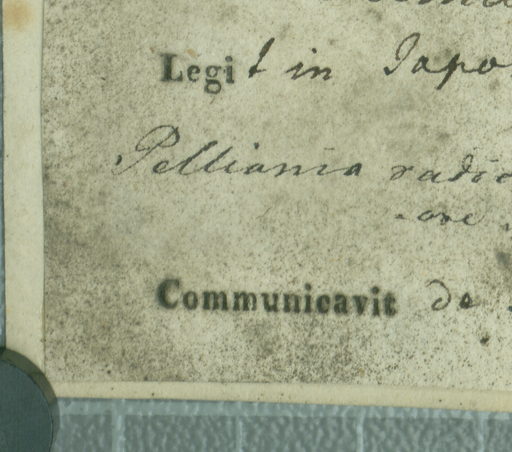 Legit in Japo
Pellionia radic
Communicavit de